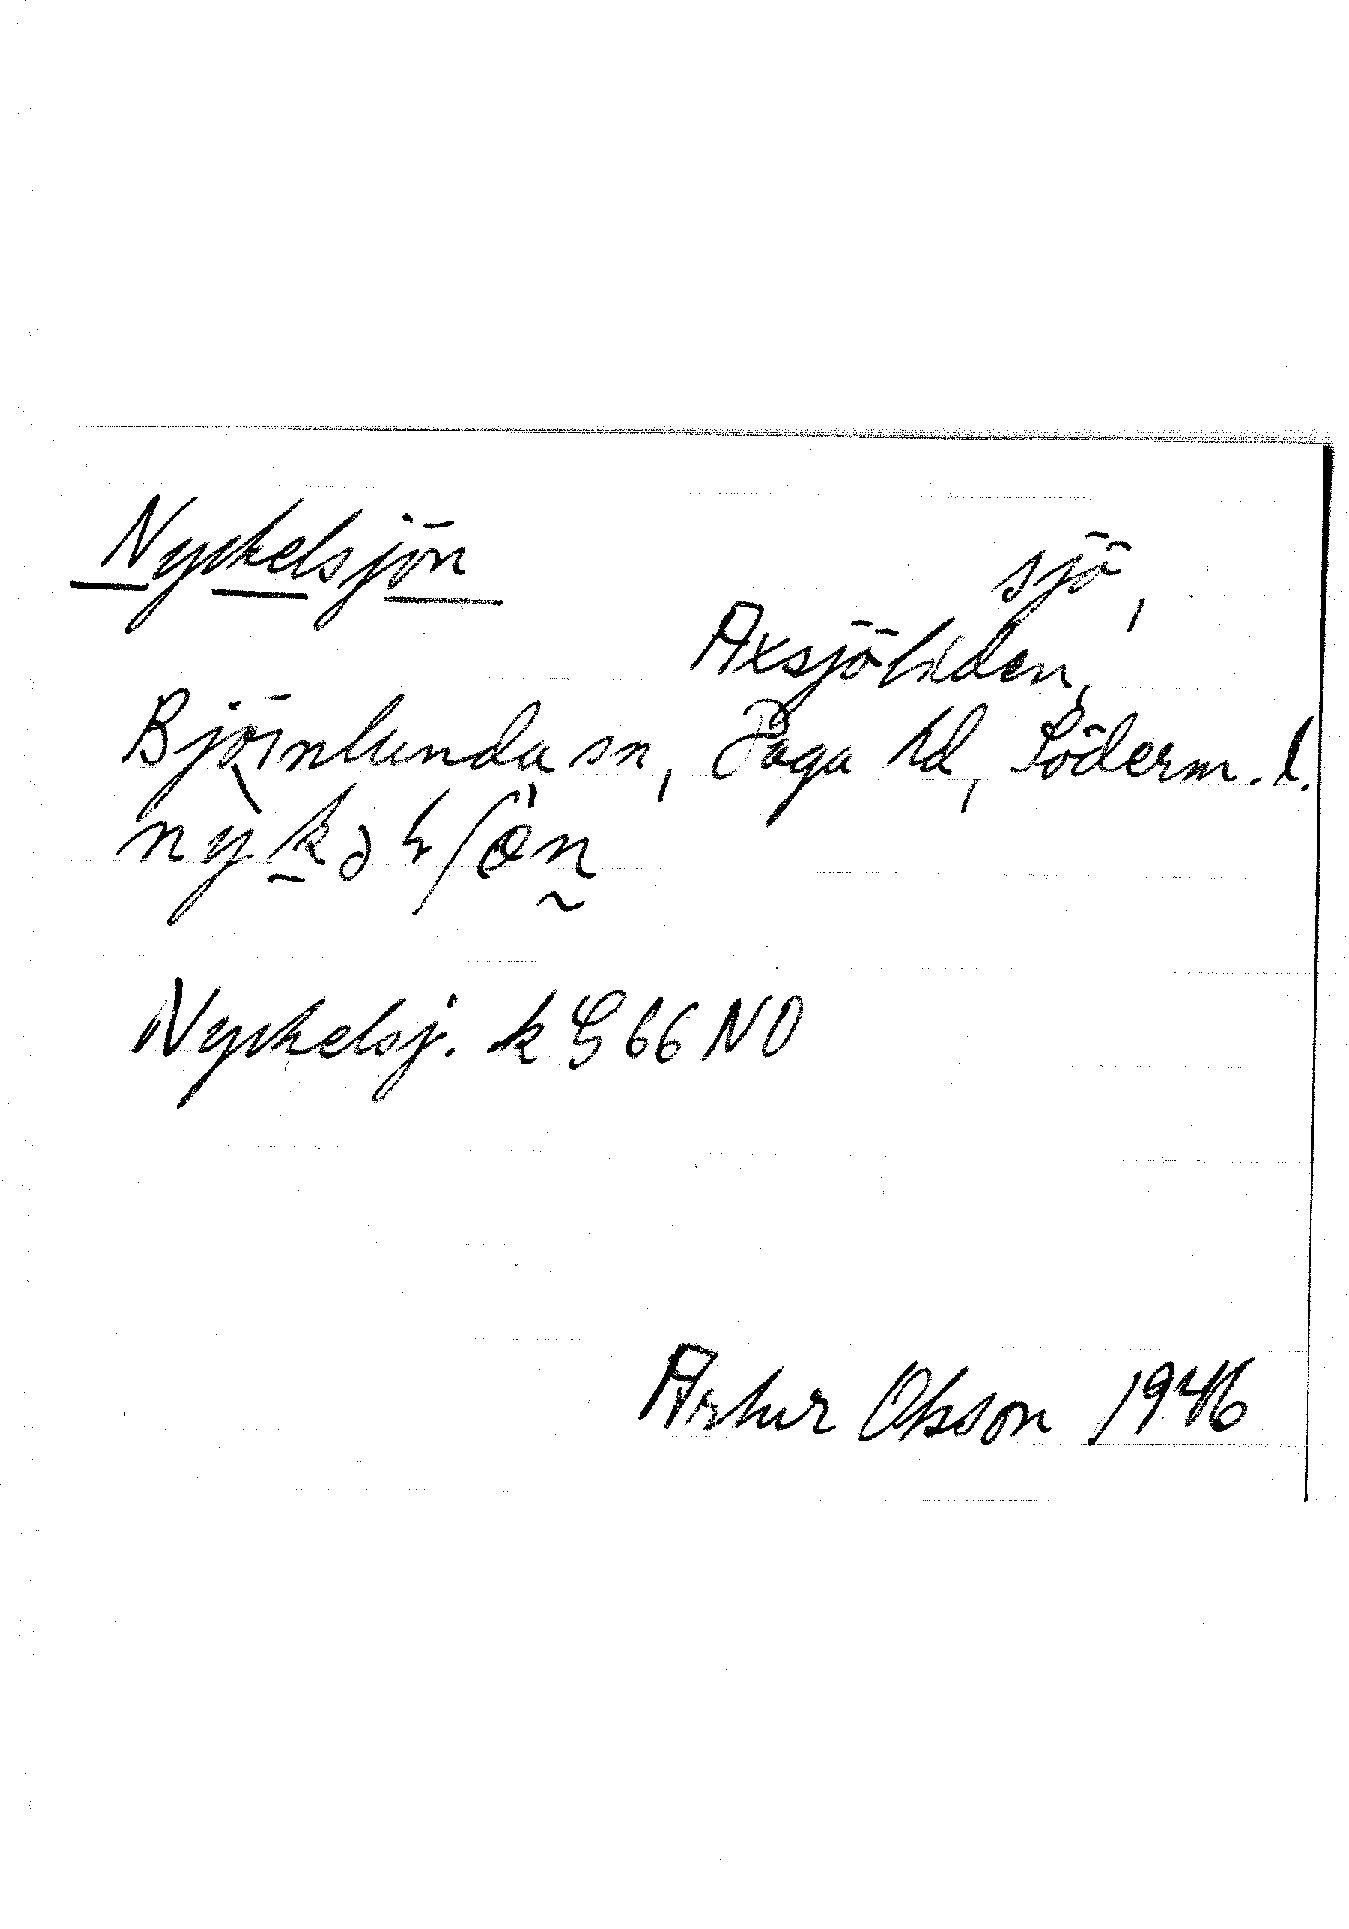 Nyckelsjön
sjö,
Axsjöliden,
Björnlunda sn, Daga hd, Söderm. l.
Nyckelsj. k G 66 NO
Artur Olsson 1946